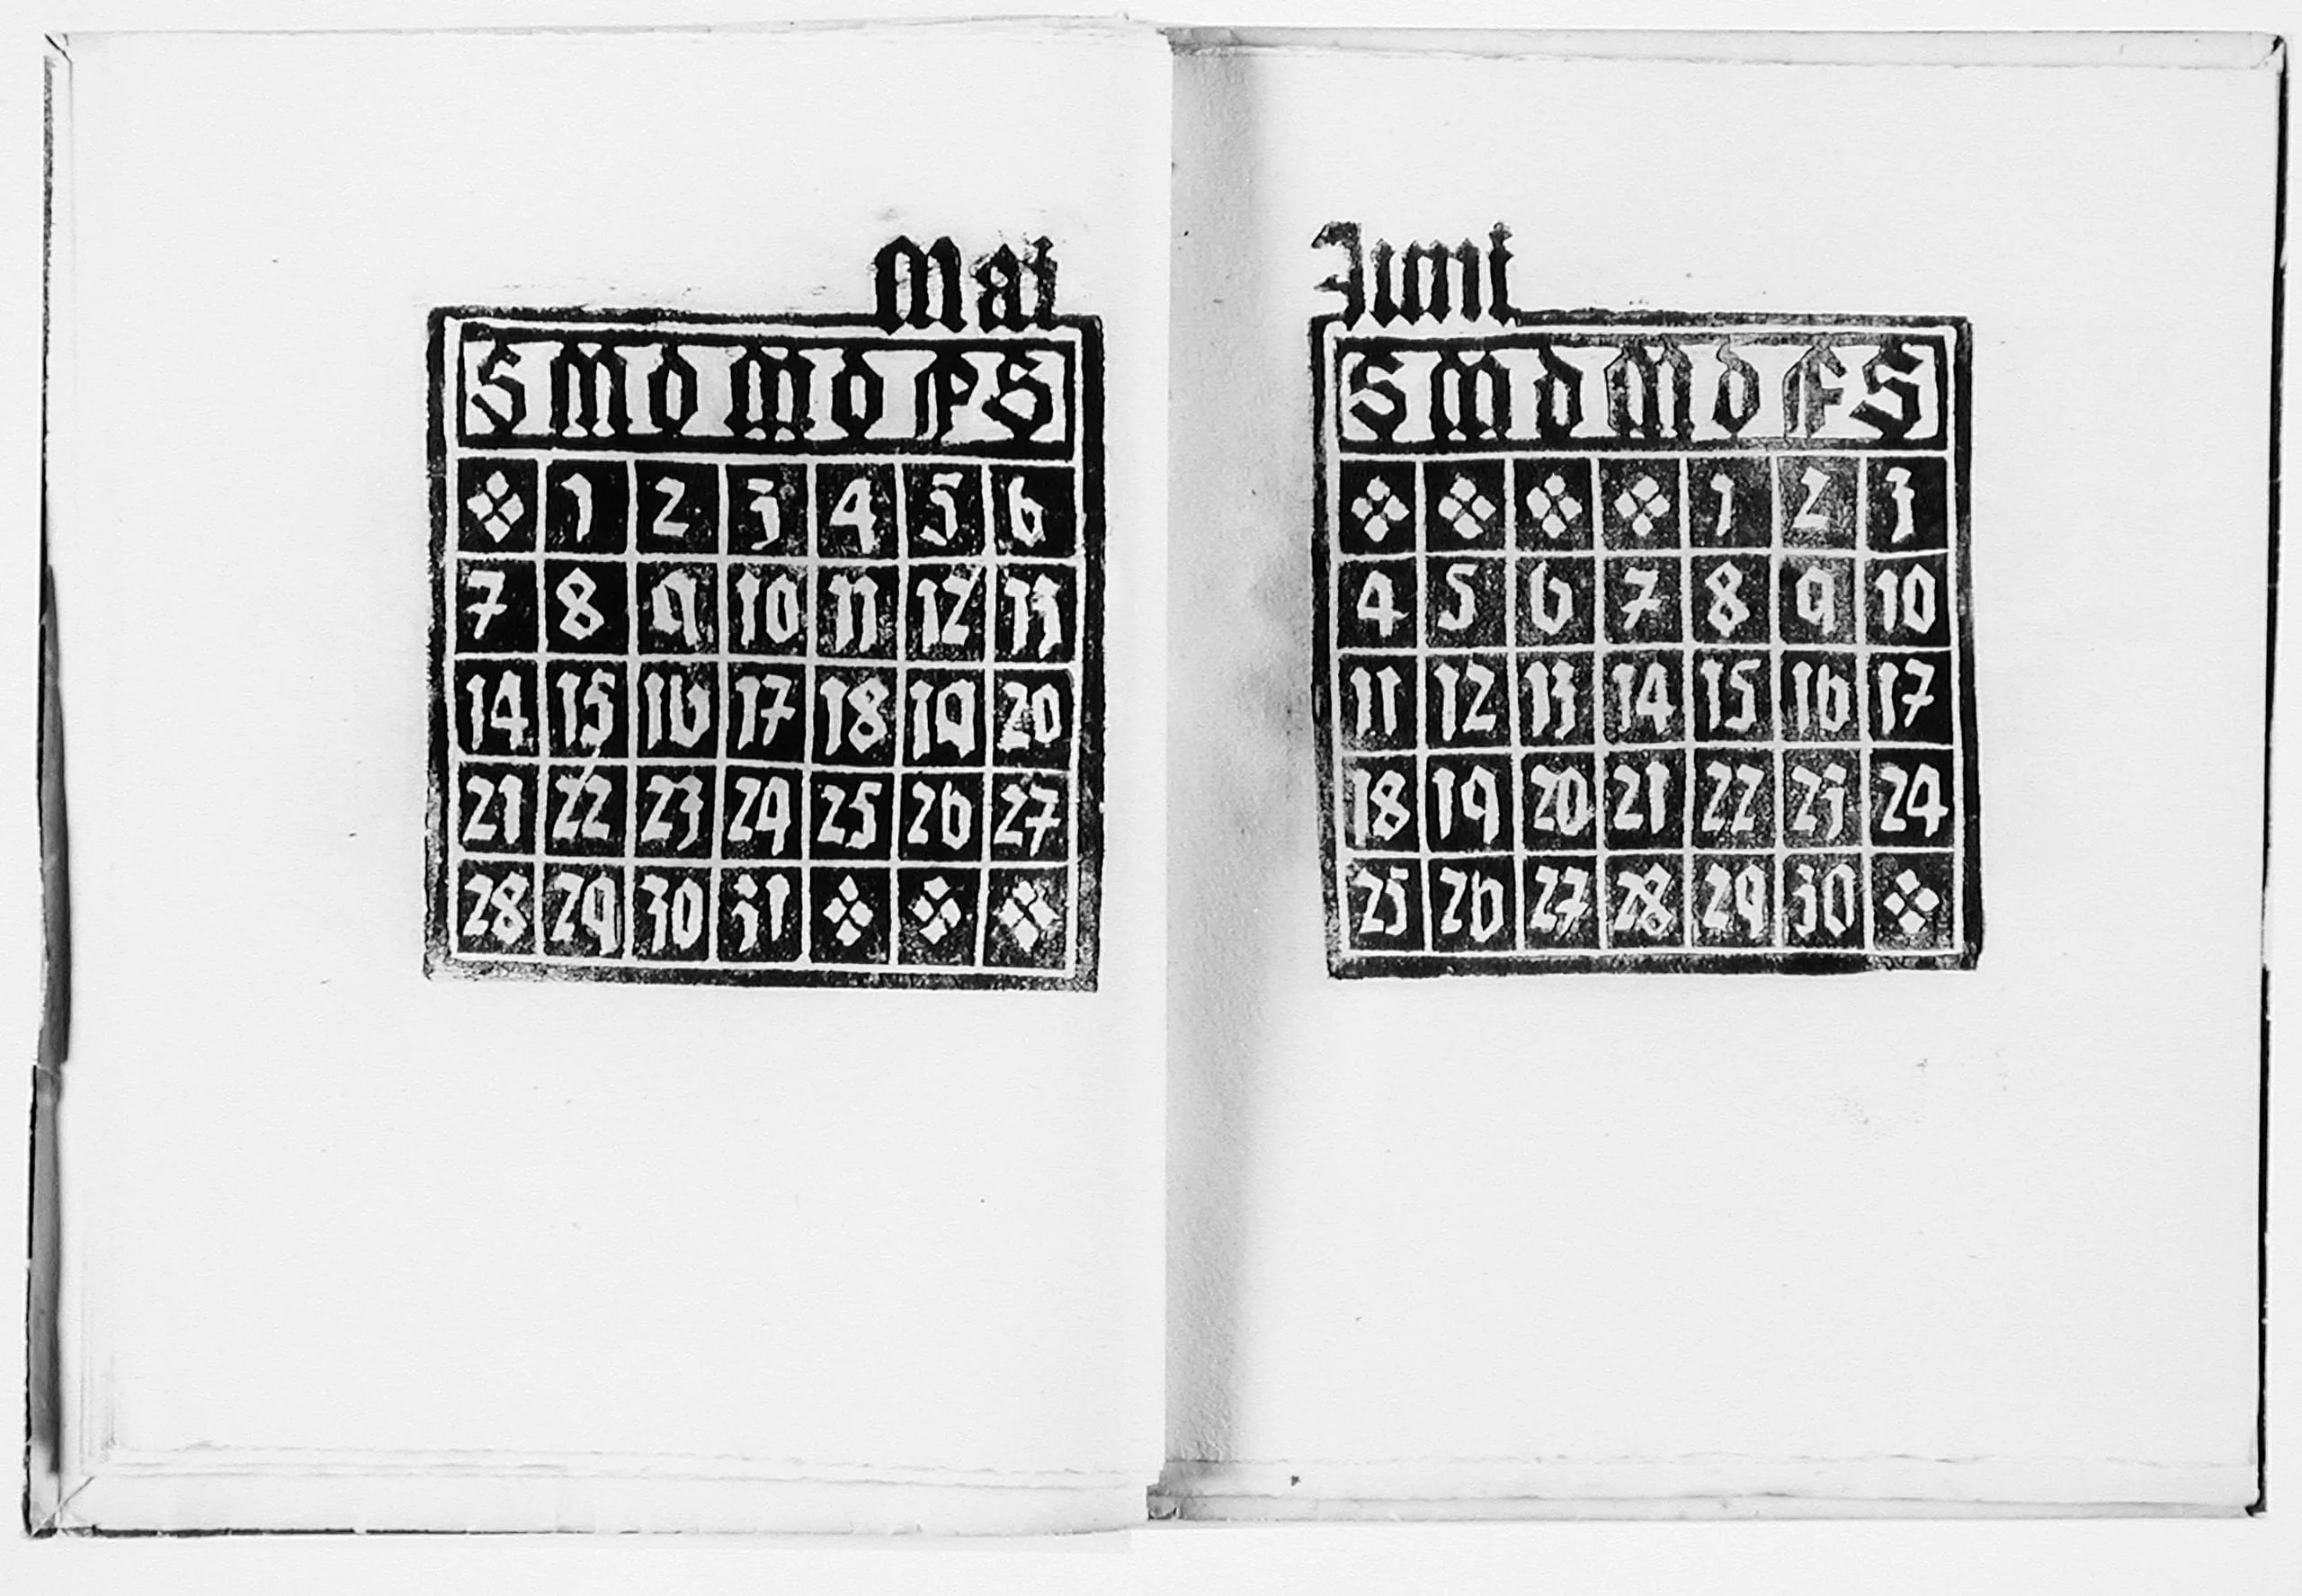 Mai
S M D M D F S
❖ 1 2 3 4 5 6
7 8 9 10 11 12 13
14 15 16 17 18 19 20
21 22 23 24 25 26 27
28 29 30 31 ❖ ❖ ❖
Juni
S M D M D F S
❖ ❖ ❖ ❖ 1 2 3
4 5 6 7 8 9 10
11 12 13 14 15 16 17
18 19 20 21 22 23 24
25 26 27 28 29 30 ❖